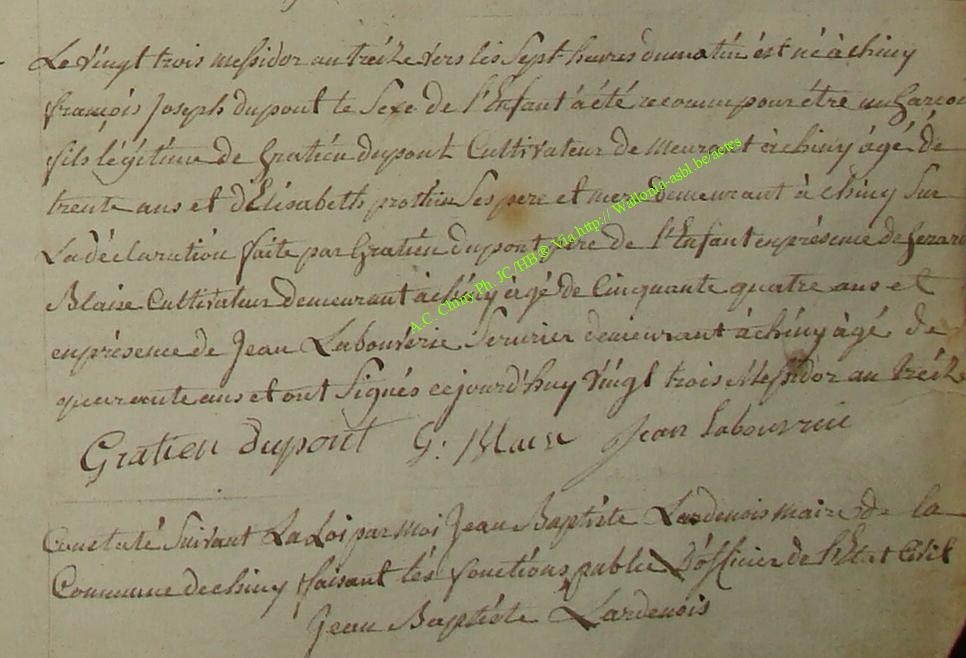 Le vingt trois messidor an treize vers les sept heures du matin est né à chiny
françois Joseph dupont le sexe de l'Enfant à été reconnu pour être un Garcon
fils légitime de Gratien dupont Cultivateur demeurant à chiny âgé de
trente ans et d'Elisabeth prothin ses pere et mere demeurant à chiny Sur
La déclaration faite par Gratien dupont pere de l'Enfant en présence de Gerard
Blaise Cultivateur demeurant à chiny âgé de Cinquante quatre ans et
en présence de Jean Labouverie Serurier demeurant à chiny âgé de
quarante ans et ont Signés cejourd'huy vingt trois Messidor an treize
Gratien dupont G: Blaise Jean Labouverie
Constaté Suivant La Loi par Moi Jean Baptiste Lardenois maire de la
Commune de chiny faisant les fonctions public D'officier de l'Etat Civil
Jean Baptiste Lardenois
A.C. Chiny Ph. JC/HB@ Via http:// Wallonia-asbl.be/actes